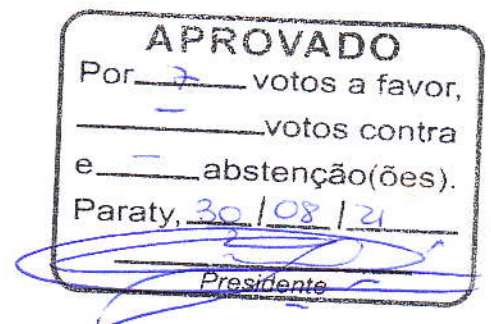 APROVADO
Por 7 votos a favor,
– votos contra
e – abstenção(ões).
Paraty, 30/08/21
Presidente